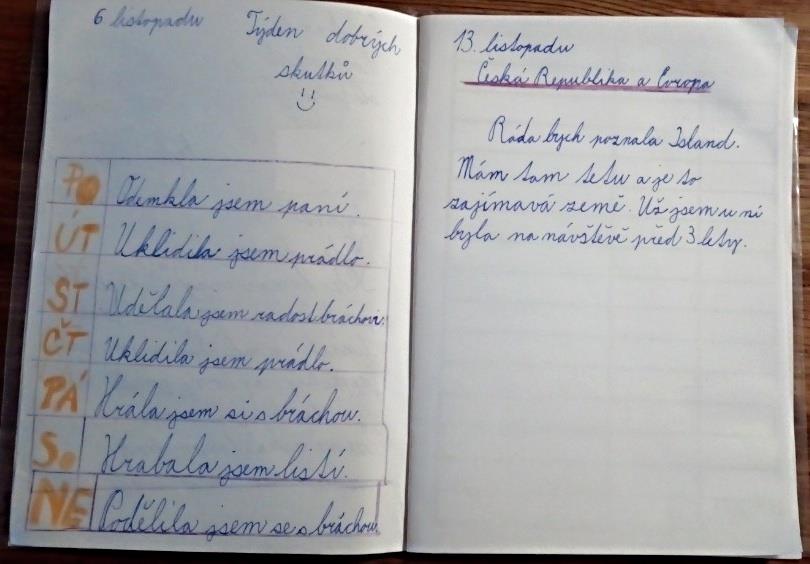 6 listopadu Týden dobrých
skutků
PO Odemkla jsem paní.
ÚT Uklidila jsem prádlo.
ST Udělala jsem radost bráchovi.
ČT Uklidila jsem prádlo.
PÁ Hrála jsem si s bráchou.
So Hrabala jsem listí.
NE Podělila jsem se s bráchou
13. listopadu
Česká Republika a Evropa
Ráda bych poznala Island.
Mám tam tetu a je to
zajímavá země. Už jsem u ní
byla na návštěvě před 3 lety.